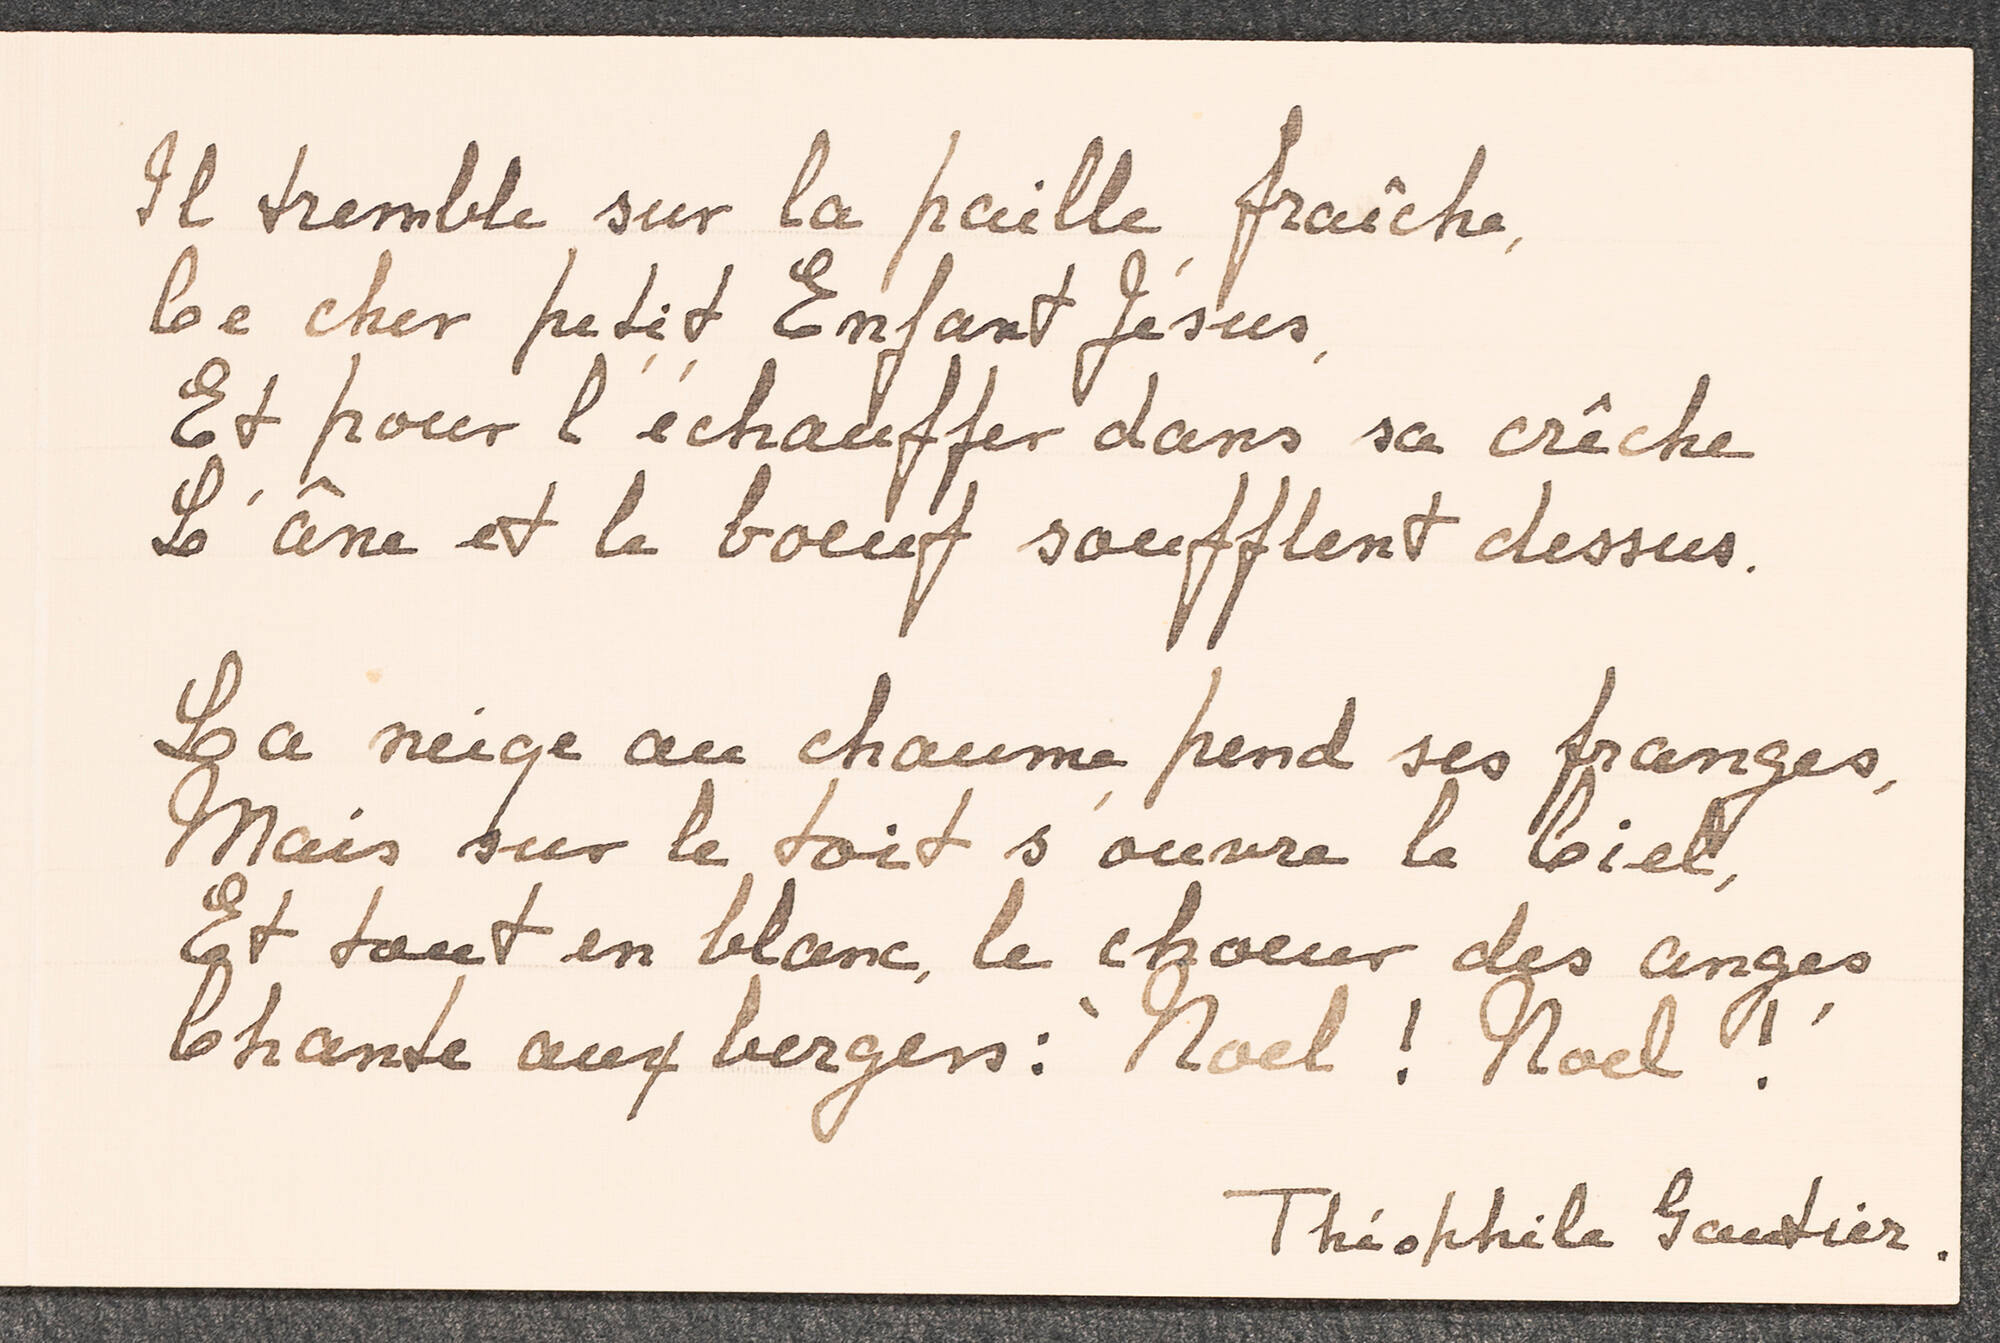 Il tremble sur la paille fraîche,
Ce cher petit Enfant Jésus,
Et pour l'échauffer dans sa crêche
L'âne et le boeuf soufflent dessus.
La neige au chaume pend ses franges,
Mais sur le toit s'ouvre le Ciel,
Et tout en blanc, le choeur des anges
Chante aux bergers: "Noel ! Noel !"
Théophile Gautier.